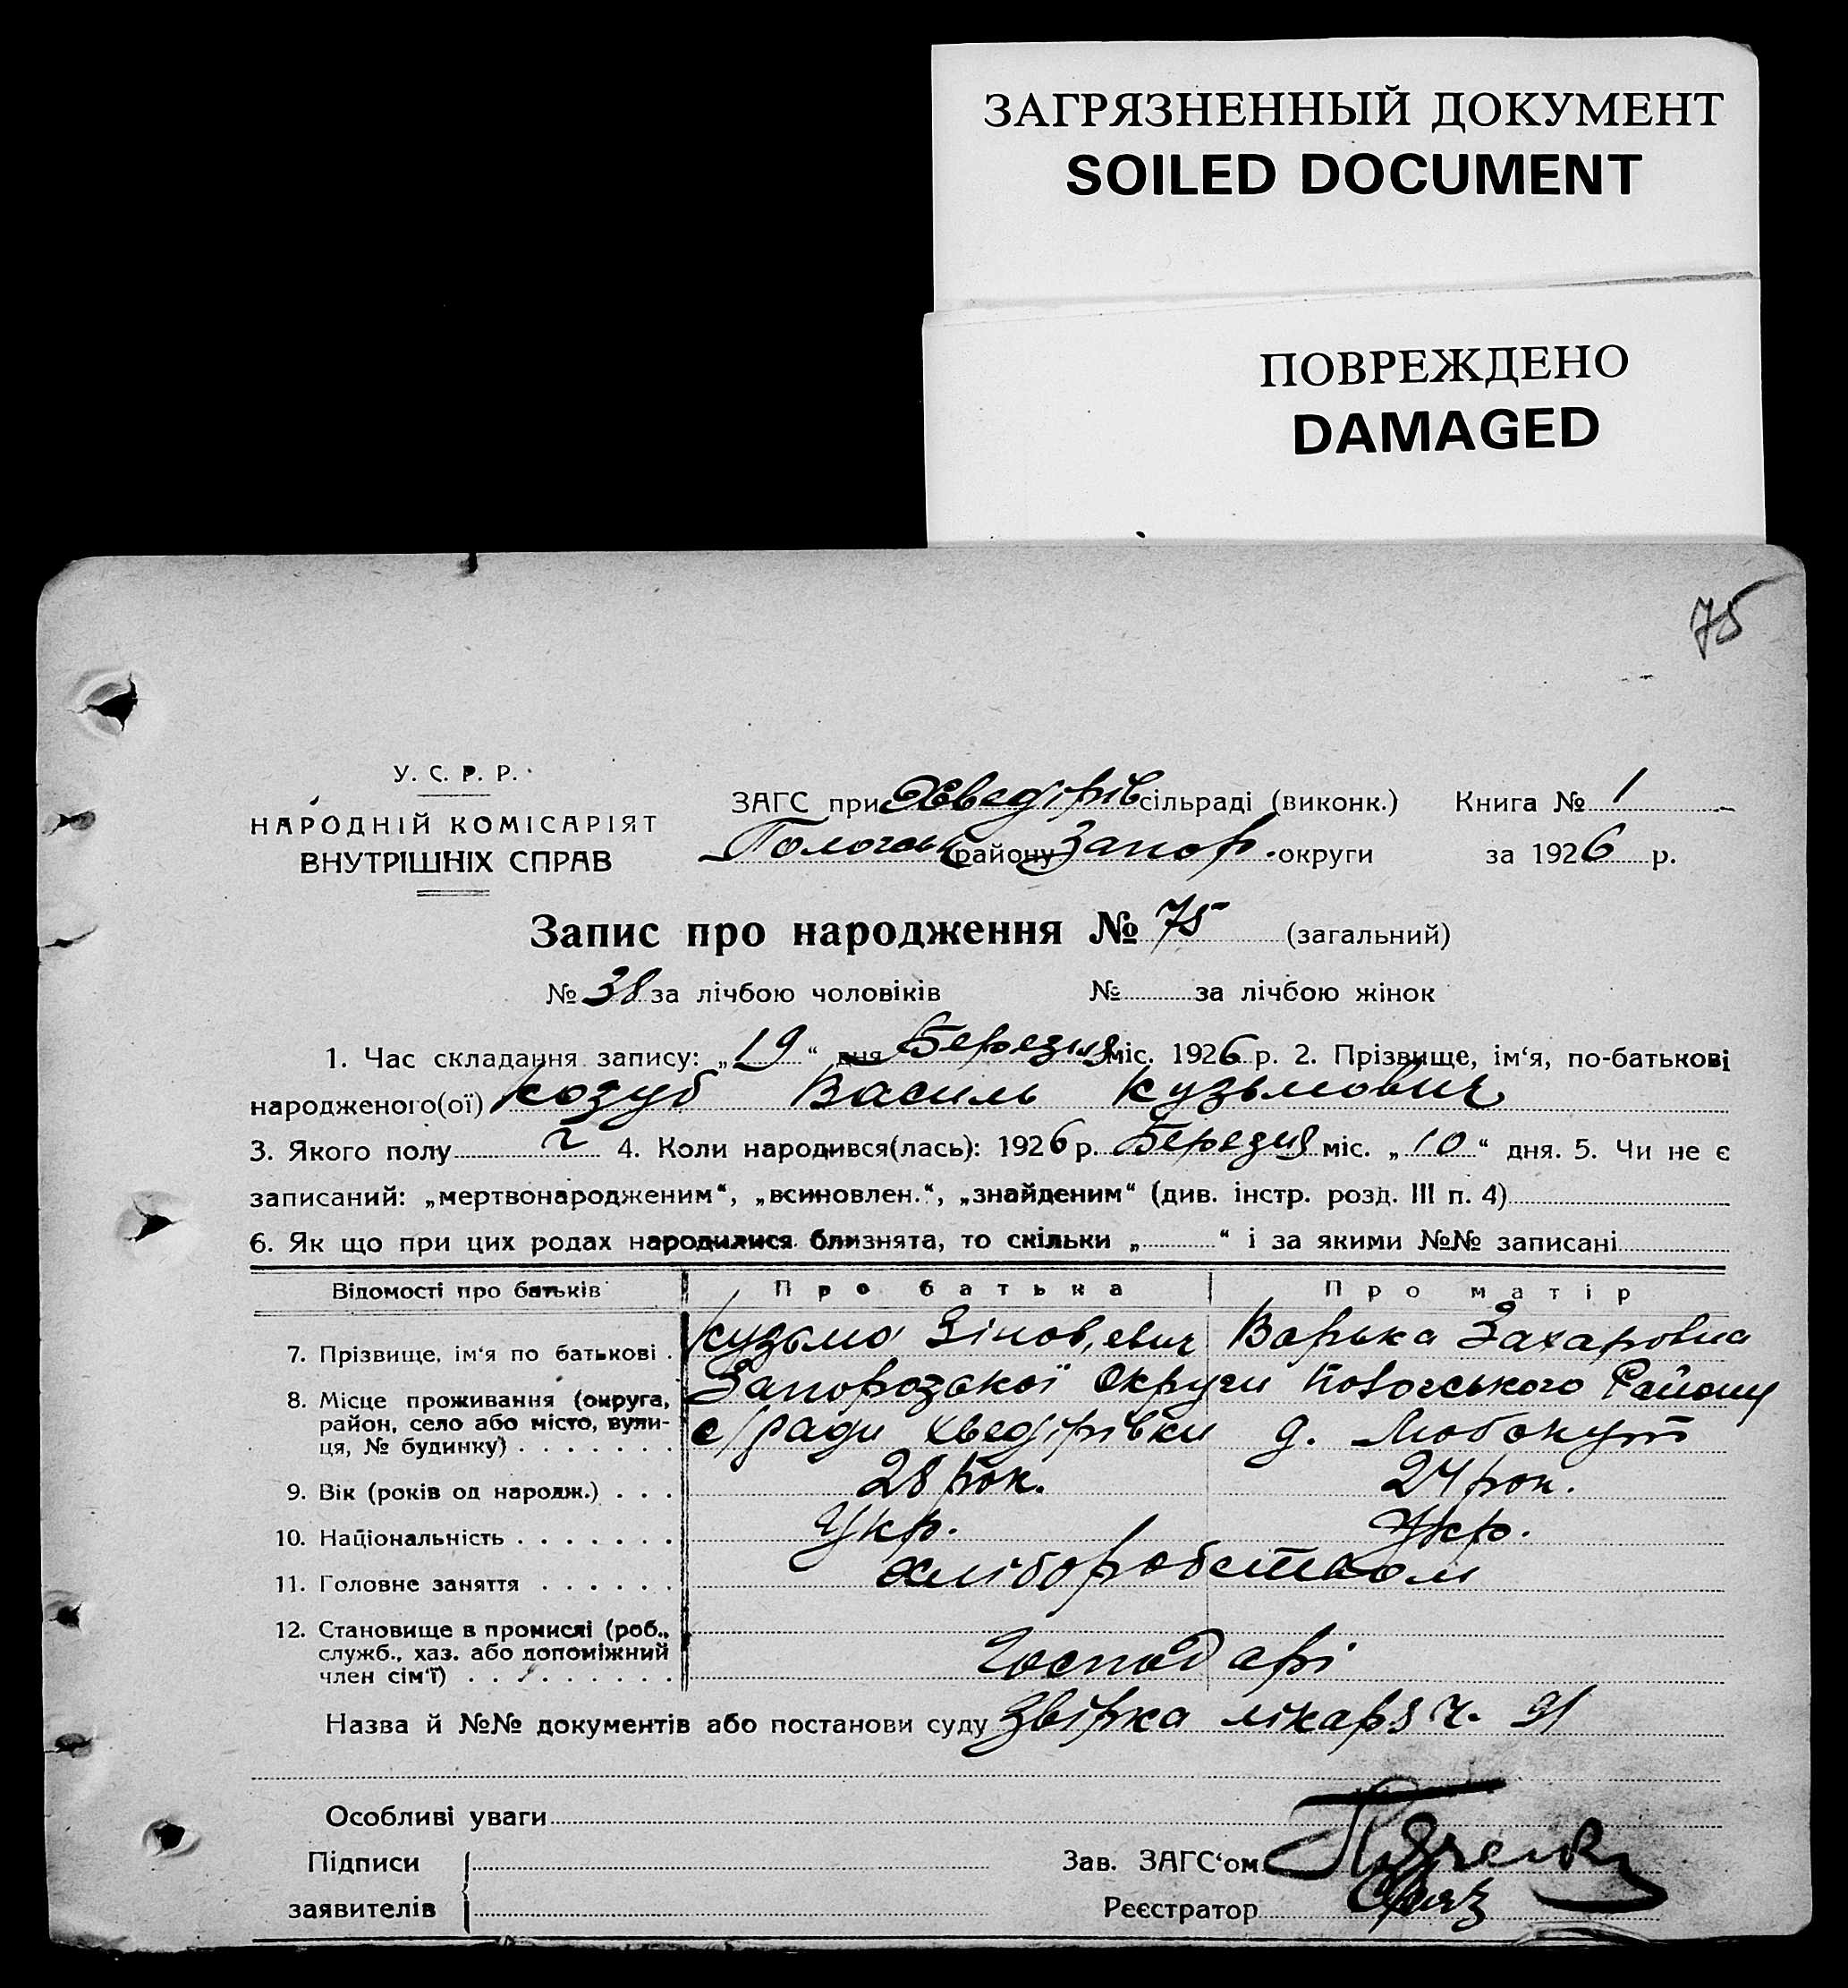 ЗАГРЯЗНЕННЫЙ ДОКУМЕНТ
SOILED DOCUMENT
ПОВРЕЖДЕНО
DAMAGED
75
У. С. Р. Р.
НАРОДНІЙ КОМІСАРІЯТ
ВНУТРІШНІХ СПРАВ
ЗАГС при Хведірів сільраді (виконк.) Книга № 1
району Запор. округи за 1926 р.
Запис про народження № 75 (загальний)
№ 38 за лічбою чоловіків № за лічбою жінок
1. Час складання запису: „19“ дня Березня міс. 1926 р. 2. Прізвище, ім‘я, по-батькові
народженого(ої) Козуб Василь Кузьмович
3. Якого полу ч 4. Коли народився(лась): 1926 р. Березня міс. „10“ дня. 5. Чи не є
записаний: „мертвонародженим“, „всиновлен.“, „знайденим“ (див. інстр. розд. III п. 4)
6. Як що при цих родах народилися близнята, то скільки „ “ і за якими №№ записані
Відомості про батьків Про батька Про матір
7. Прізвище, ім‘я по батькові . Кузьма Зінов,евич Варька Захаровна
8. Місце проживання (округа, Запорозької Округи Пологського Району
район, село або місто, вули- с/ради Хведірівки д. Любокут
ця, № будинку) . . . . . . .
9. Вік (років од народж.) . . . 28 рок. 24 рок.
10. Національність . . . . . . . Укр. Укр.
11. Головне заняття . . . . . . хліборобством
12. Становище в промислі (роб.,
служб., хаз. або допоміжний Господарі
член сім‘ї) . . . . . . . . .
Назва й №№ документів або постанови суду Звірка лікаря ч. 91
Особливі уваги
Підписи Зав. ЗАГС‘ом
заявителів Реєстратор